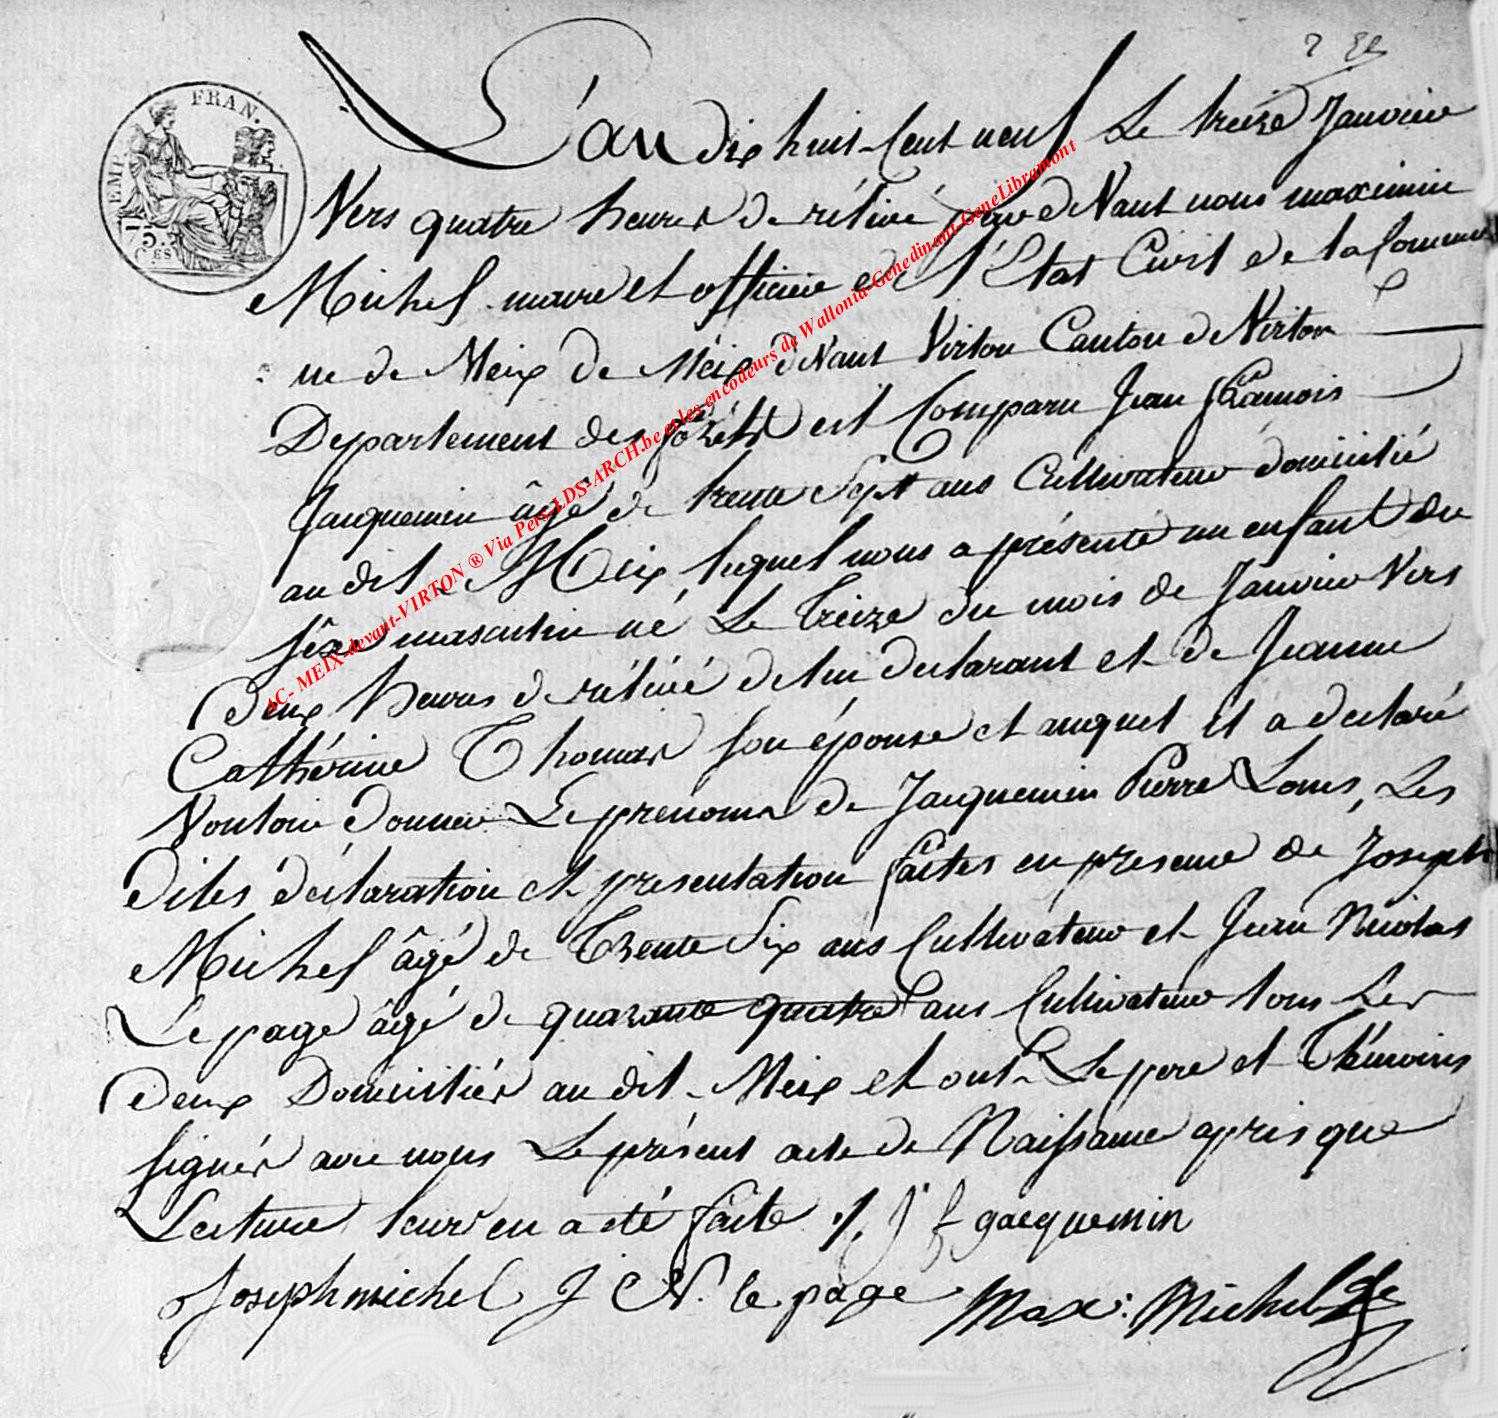 FRAN.
EMP.
75.
C.ES
L'an dix huit Cent neuf Le treize Janvier
Vers quatre heures de rélivé par deVant nous maximin
Michel maire et officier de l'Etat Civil de la Commu
ne de Meix de Meix deVant Virton Canton de Virton
Departement des forêts est Comparu Jean francois
Jacquemin âgé de trente Sept ans Cultivateur domicilié
au dit Meix, lequel nous a présenté un enfant du
séxe masculin né Le Treize du mois de Janvier Vers
deux heures de rélivé de lui declarant et de Jeanne
Cathérine Thomas son épouse et auquel il a declaré
Vouloir donner Le prenoms de Jacquemin Pierre Louis, Les
dites déclaration et presentation faites en presence de Joseph
Michel âgé de Trente Six ans Cultivateur et Jean Nicolas
Le page âgé de quarante quatre ans Cultivateur tous Les
deux Domiciliés au dit Meix et ont Le pere et Thémoins
signés avec nous Le présent acte de Naissance apris que
Lecture leur en a été faite ./. J f gacquemin
Joseph michel J N. le page Max: Michel
AC- MEIX-devant-VIRTON ® Via Pers-LDS-ARCH.be et les encodeurs de Wallonia-Genedinant-GeneLibramont